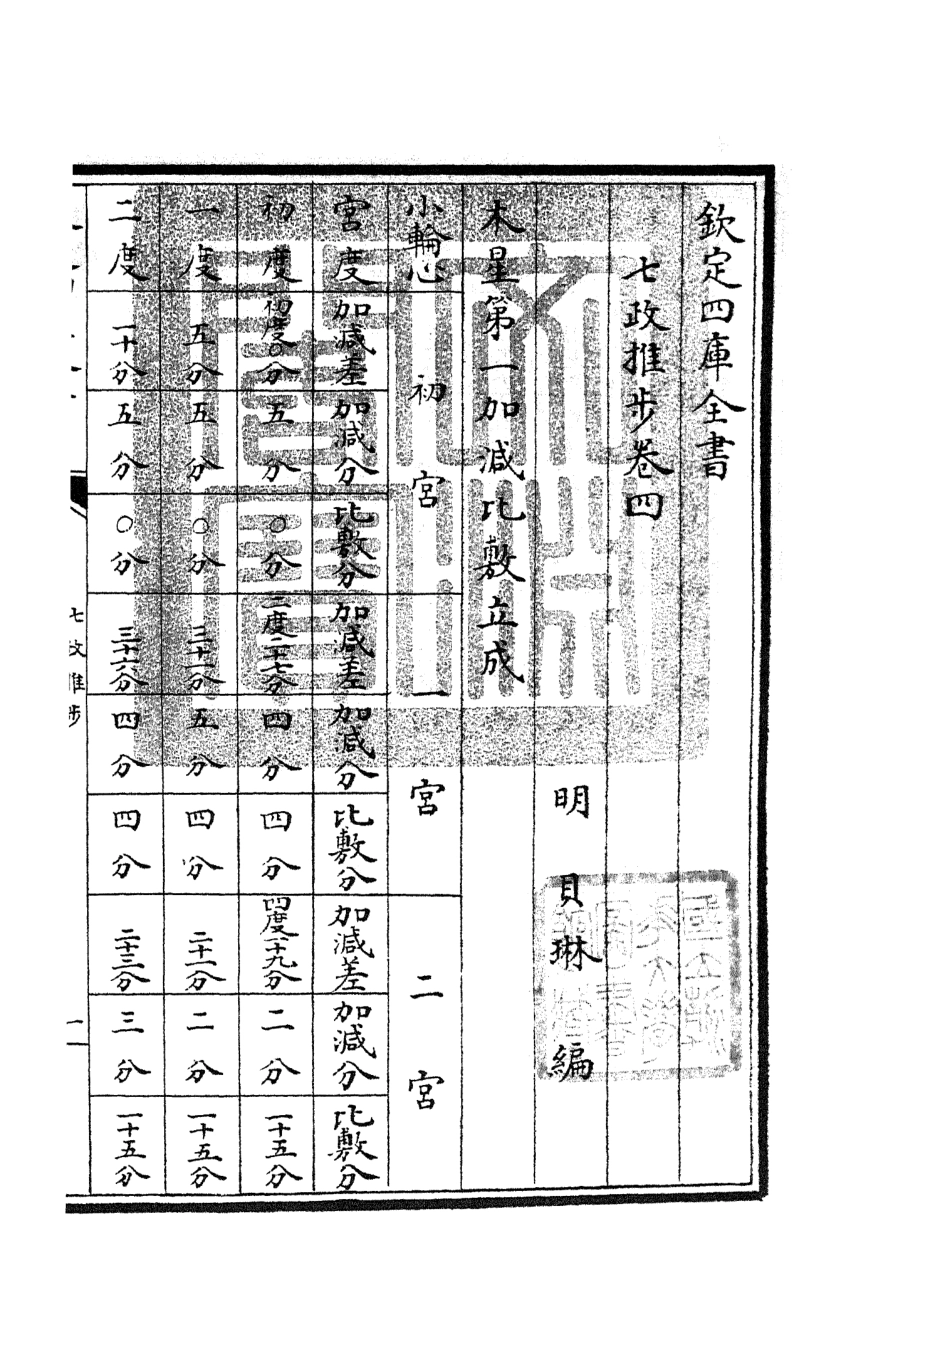 欽定四庫全書
七政推步卷四
明 貝琳 編
木星第一加減比敷立成
小輪心 初宮 一宮 二宮
宮度 加減差 加減分 比敷分 加減差 加減分 比敷分 加減差 加減分 比敷分
初度 初度〇分 五分 〇分 二度二十七分 四分 四分 四度二十九分 二分 一十五分
一度 五分 五分 〇分 三十一分 五分 四分 二十一分 二分 一十五分
二度 一十分 五分 〇分 三十六分 四分 四分 二十三分 三分 一十五分
七政推步